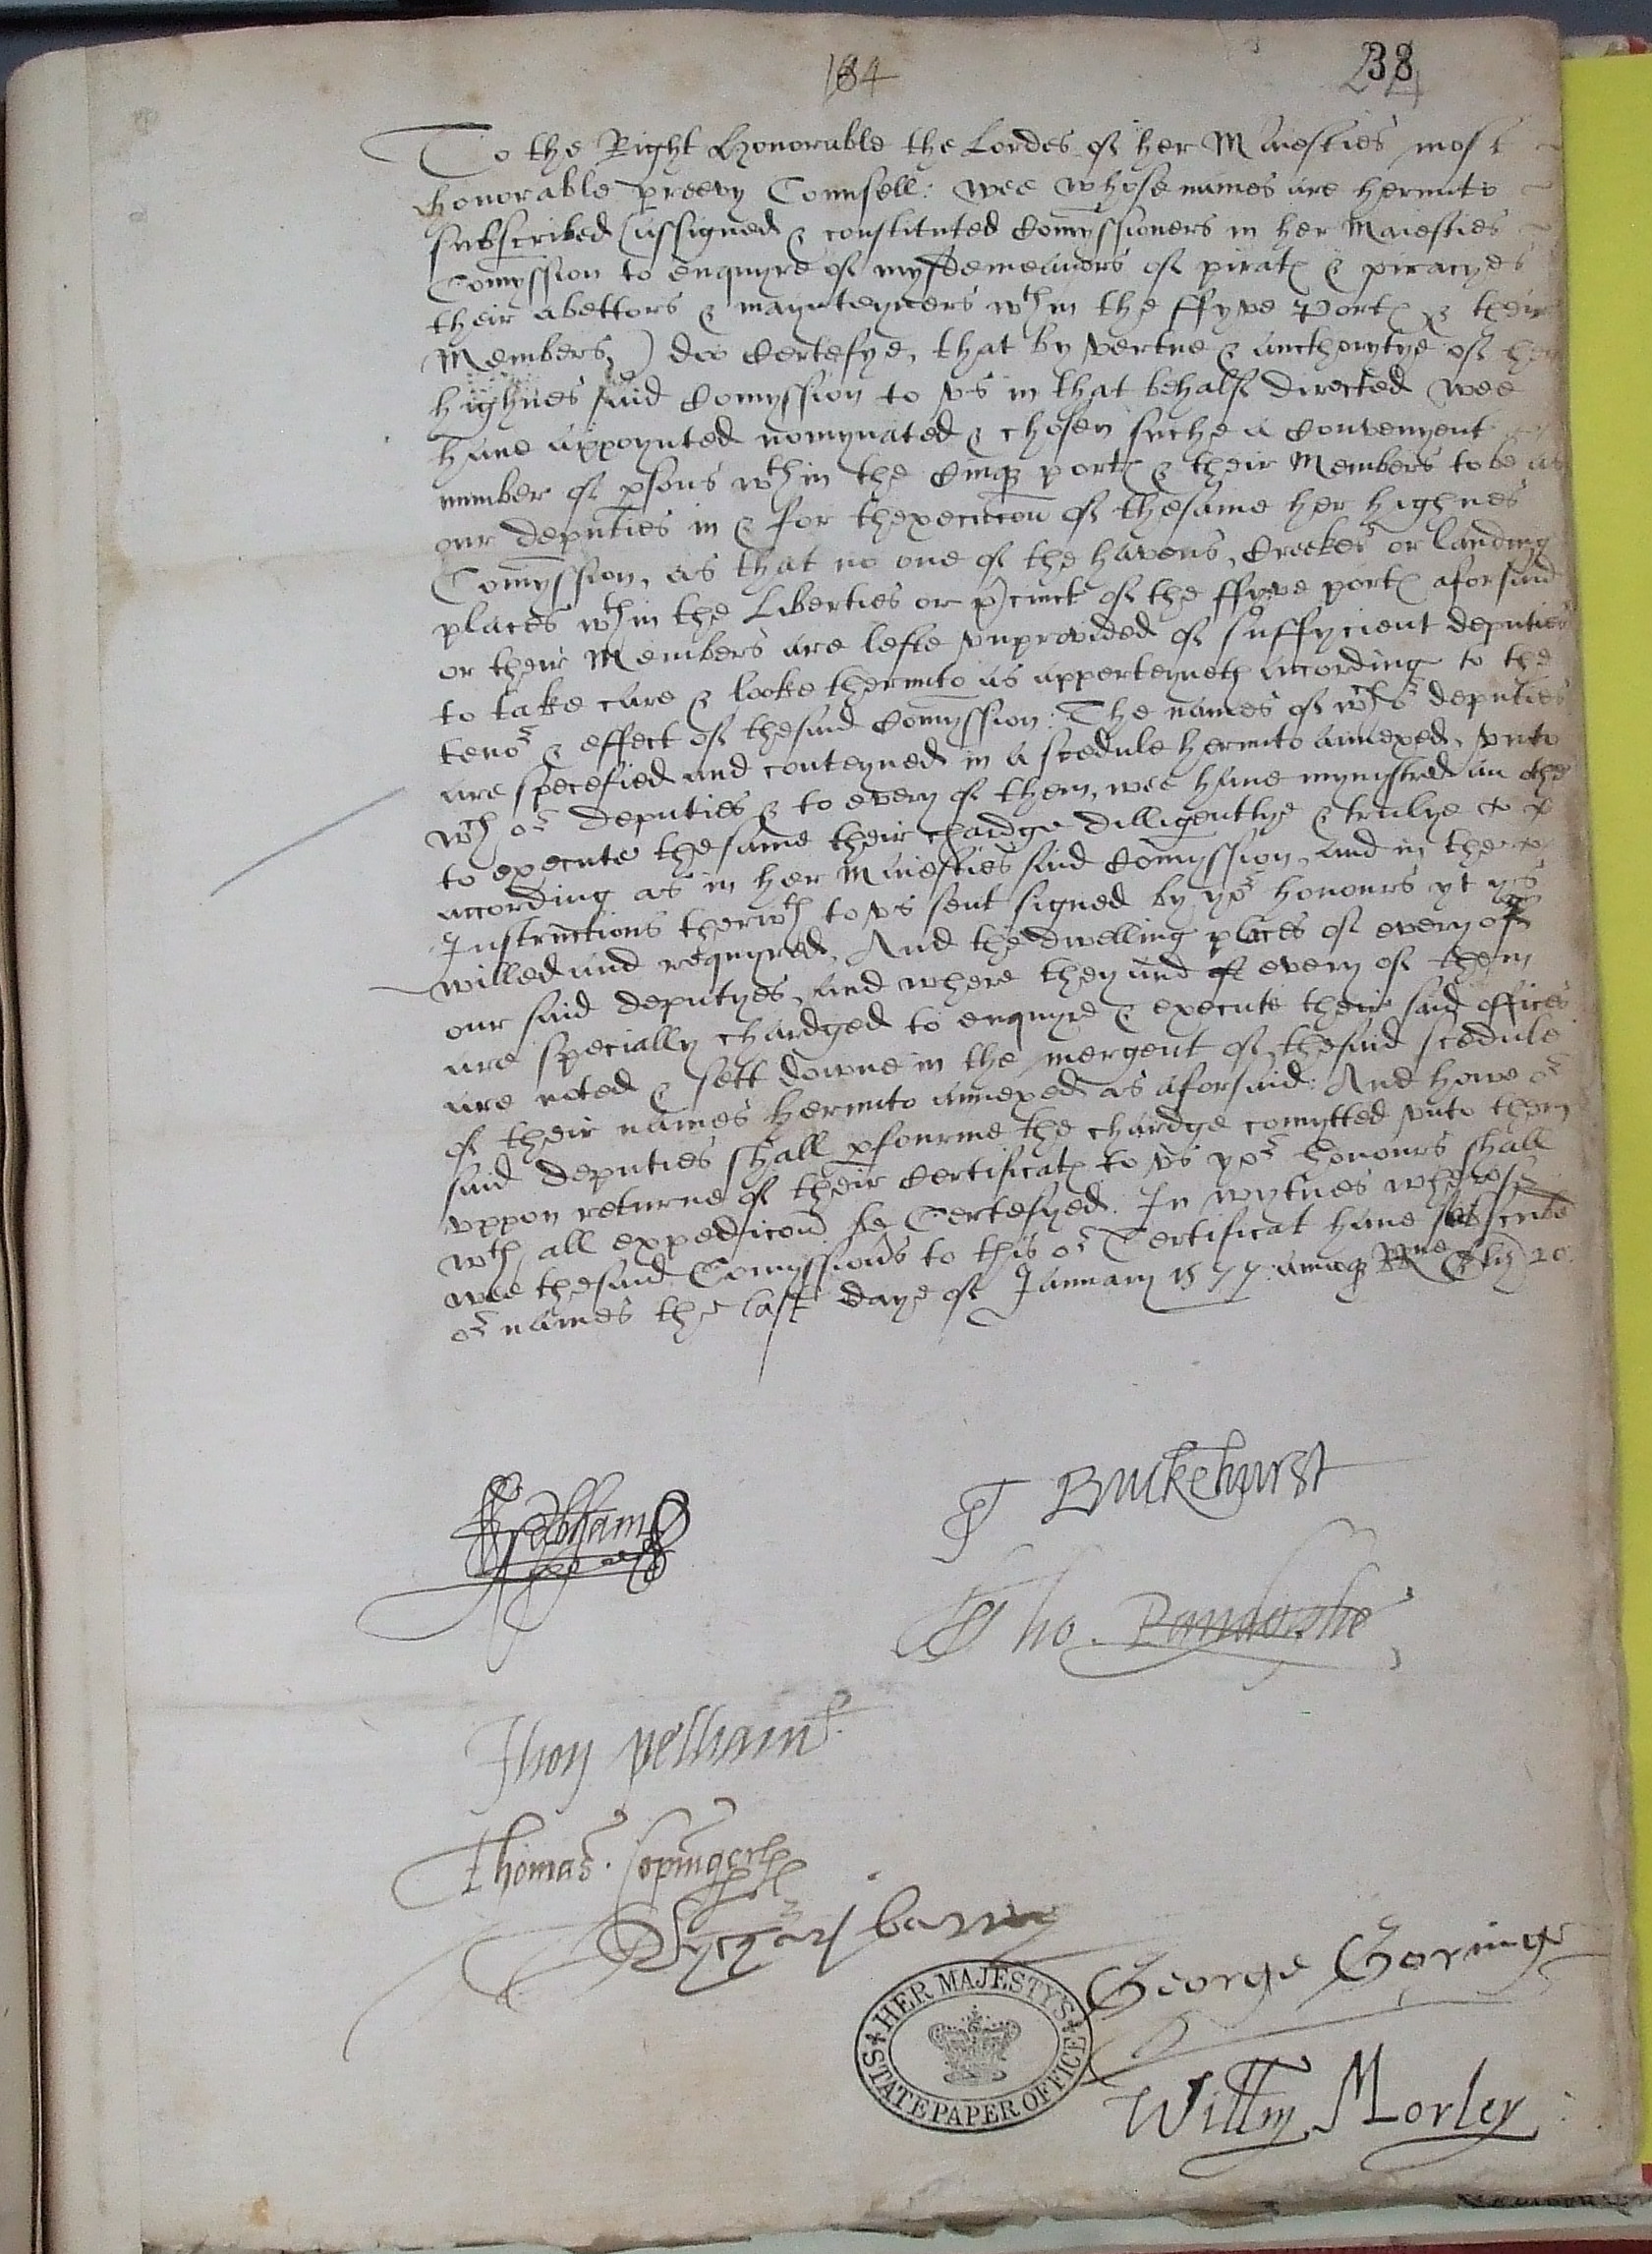 184
38
To the Right Honorable the Lordes of her Maiesties most
honorable preevy Counsell: wee whose names are herunto
subscribed (assigned & constituted Comyssioners in her Maiesties
Comyssion to enquyre of mysdemeanors of pirat & piracyes
their abettors & maynteyners wth in the ffyve Port & their
Members,) doo Certefye, that by vertue & aucthorytye of her
highnes said Comyssion to vs in that behalf directed wee
haue appoynted nomynated & chosen suche a Convenyent
number of psons wth in the Cinq port & their Members to be as
our deputies in & for thexecucon of thesame her highnes
Comyssion, as that no one of the havens, Creekes or landing
places wth in the Liberties or pcinct of the ffyve port aforsaid
or their Members are lefte vnprovided of suffycient deputies
to take care & looke therunto as apperteyneth according to the
tenor & effect of thesaid Comyssion: The names of wch deputies
are specefied and conteyned in a scedule herunto annexed, vnto
wch or deputies & to every of them, wee haue mynystred an othe
to execute thesame their chardge dilligentlye & trulye
according as in her Maiesties said Comyssion, and in the
Instructions therwth to vs sent signed by yor honours yt ys
willed and requyred. And the dwelling places of every of
our said deputyes, and where they and every of them
are specially chardged to enquyre & execute their said offices
are noted & sett downe in the mergent of thesaid scedule
of their names herunto annexed as aforsaid: And howe or
said deputies shall pfourme the chardge comytted vnto them
vppon returne of their Certificat to vs yor honours shall
wth all expedicon be Certefyed. In wytnes wherof
wee thesaid Comyssions to this or Certificat haue subscribed
or names the last daye of January 1577. annoq RRne Eliz 20.
W Cobham
T Buckehurst
Tho. Randolphe
Jhon pelham
Thomas Copinger
Rychard barrey
George Goringe
Willm Morley
HER MAJESTY'S
STATE PAPER OFFICE